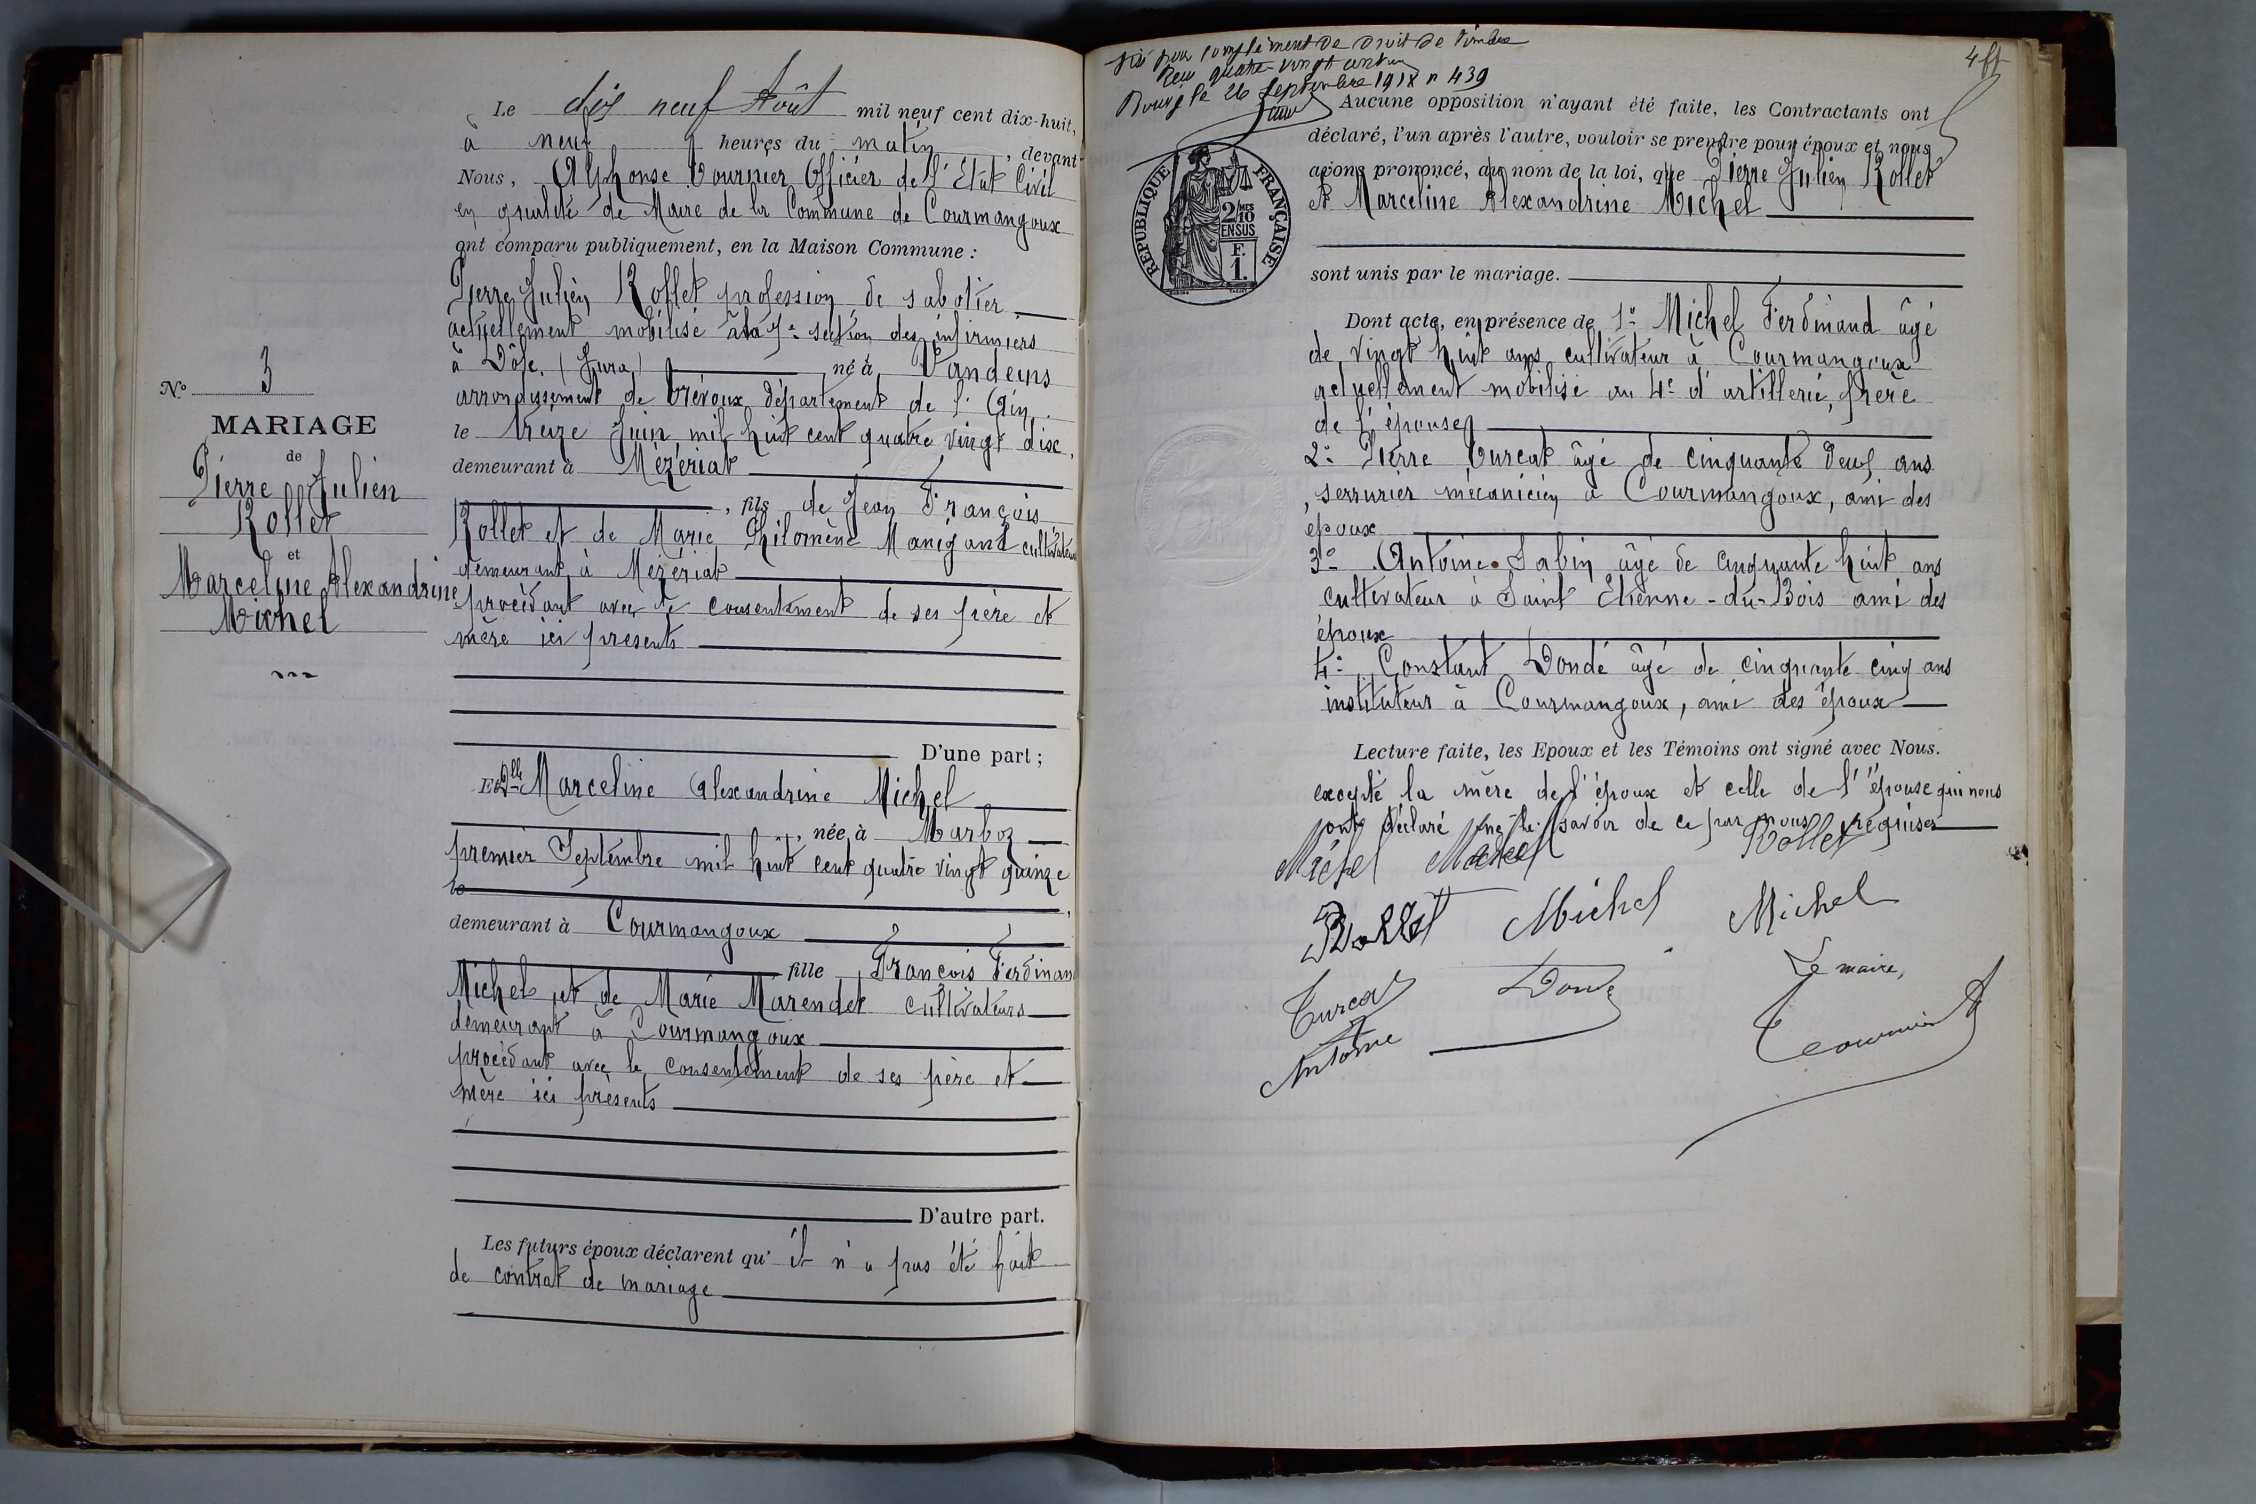 N° 3
MARIAGE
de
Pierre Julien
Rollet
et
Marceline Alexandrine
Michel
Le dix neuf Août mil neuf cent dix-huit,
à neuf heures du matin, devant
Nous, Alphonse Tournier Officier de l'Etat Civil
en qualité de Maire de la Commune de Courmangoux
ont comparu publiquement, en la Maison Commune :
Pierre Julien Rollet profession de sabotier
actuellement mobilisé à la 7e section des infirmiers
à Dôle (Jura) né à Vandeins
arrondissement de Trévoux département de l'Ain
le treize Juin mil huit cent quatre vingt dix,
demeurant à Mézériat
, fils de Jean François
Rollet et de Marie Philomène Manigand cultivateurs
demeurant à Mézériat
procédant avec le consentement de ses père et
mère ici présents
D'une part ;
Et Dlle Marceline Alexandrine Michel
, née à Marboz
premier Septembre mil huit cent quatre vingt quinze
le
demeurant à Courmangoux
fille François Ferdinand
Michel et de Marie Marendet cultivateurs
demeurant à Courmangoux
procédant avec le consentement de ses père et
mère ici présents
D'autre part.
Les futurs époux déclarent qu' il n'a pas été fait
de contrat de mariage
pour complément de droit de timbre
Reçu quatre-vingt
Bourg le 26 Septembre 1918 n 439
Aucune opposition n'ayant été faite, les Contractants ont
déclaré, l'un après l'autre, vouloir se prendre pour époux et nous
avons prononcé, au nom de la loi, que Pierre Julien Rollet
et Marceline Alexandrine Michel
RÉPUBLIQUE FRANÇAISE
2/10 MES
EN SUS
F.
1.
sont unis par le mariage.
Dont acte, en présence de 1° Michel Ferdinand âgé
de vingt huit ans cultivateur à Courmangoux
actuellement mobilisé au 4e d'artillerie, frère
de l'épouse
2° Pierre Turcat âgé de cinquante deux ans
, serrurier mécanicien à Courmangoux, ami des
époux
3° Antoine Sabin âgé de cinquante huit ans
cultivateur à Saint Etienne-du-Bois ami des
époux
4° Constant Dondé âgé de cinquante cinq ans
instituteur à Courmangoux, ami des époux
Lecture faite, les Epoux et les Témoins ont signé avec Nous.
excepté la mère de l'époux et celle de l'épouse qui nous
ont déclaré ne le savoir de ce par nous requises
Michel Michel Rollet
Rollet Michel Michel
Le maire,
Turcat Dondé
Antoine Tournier